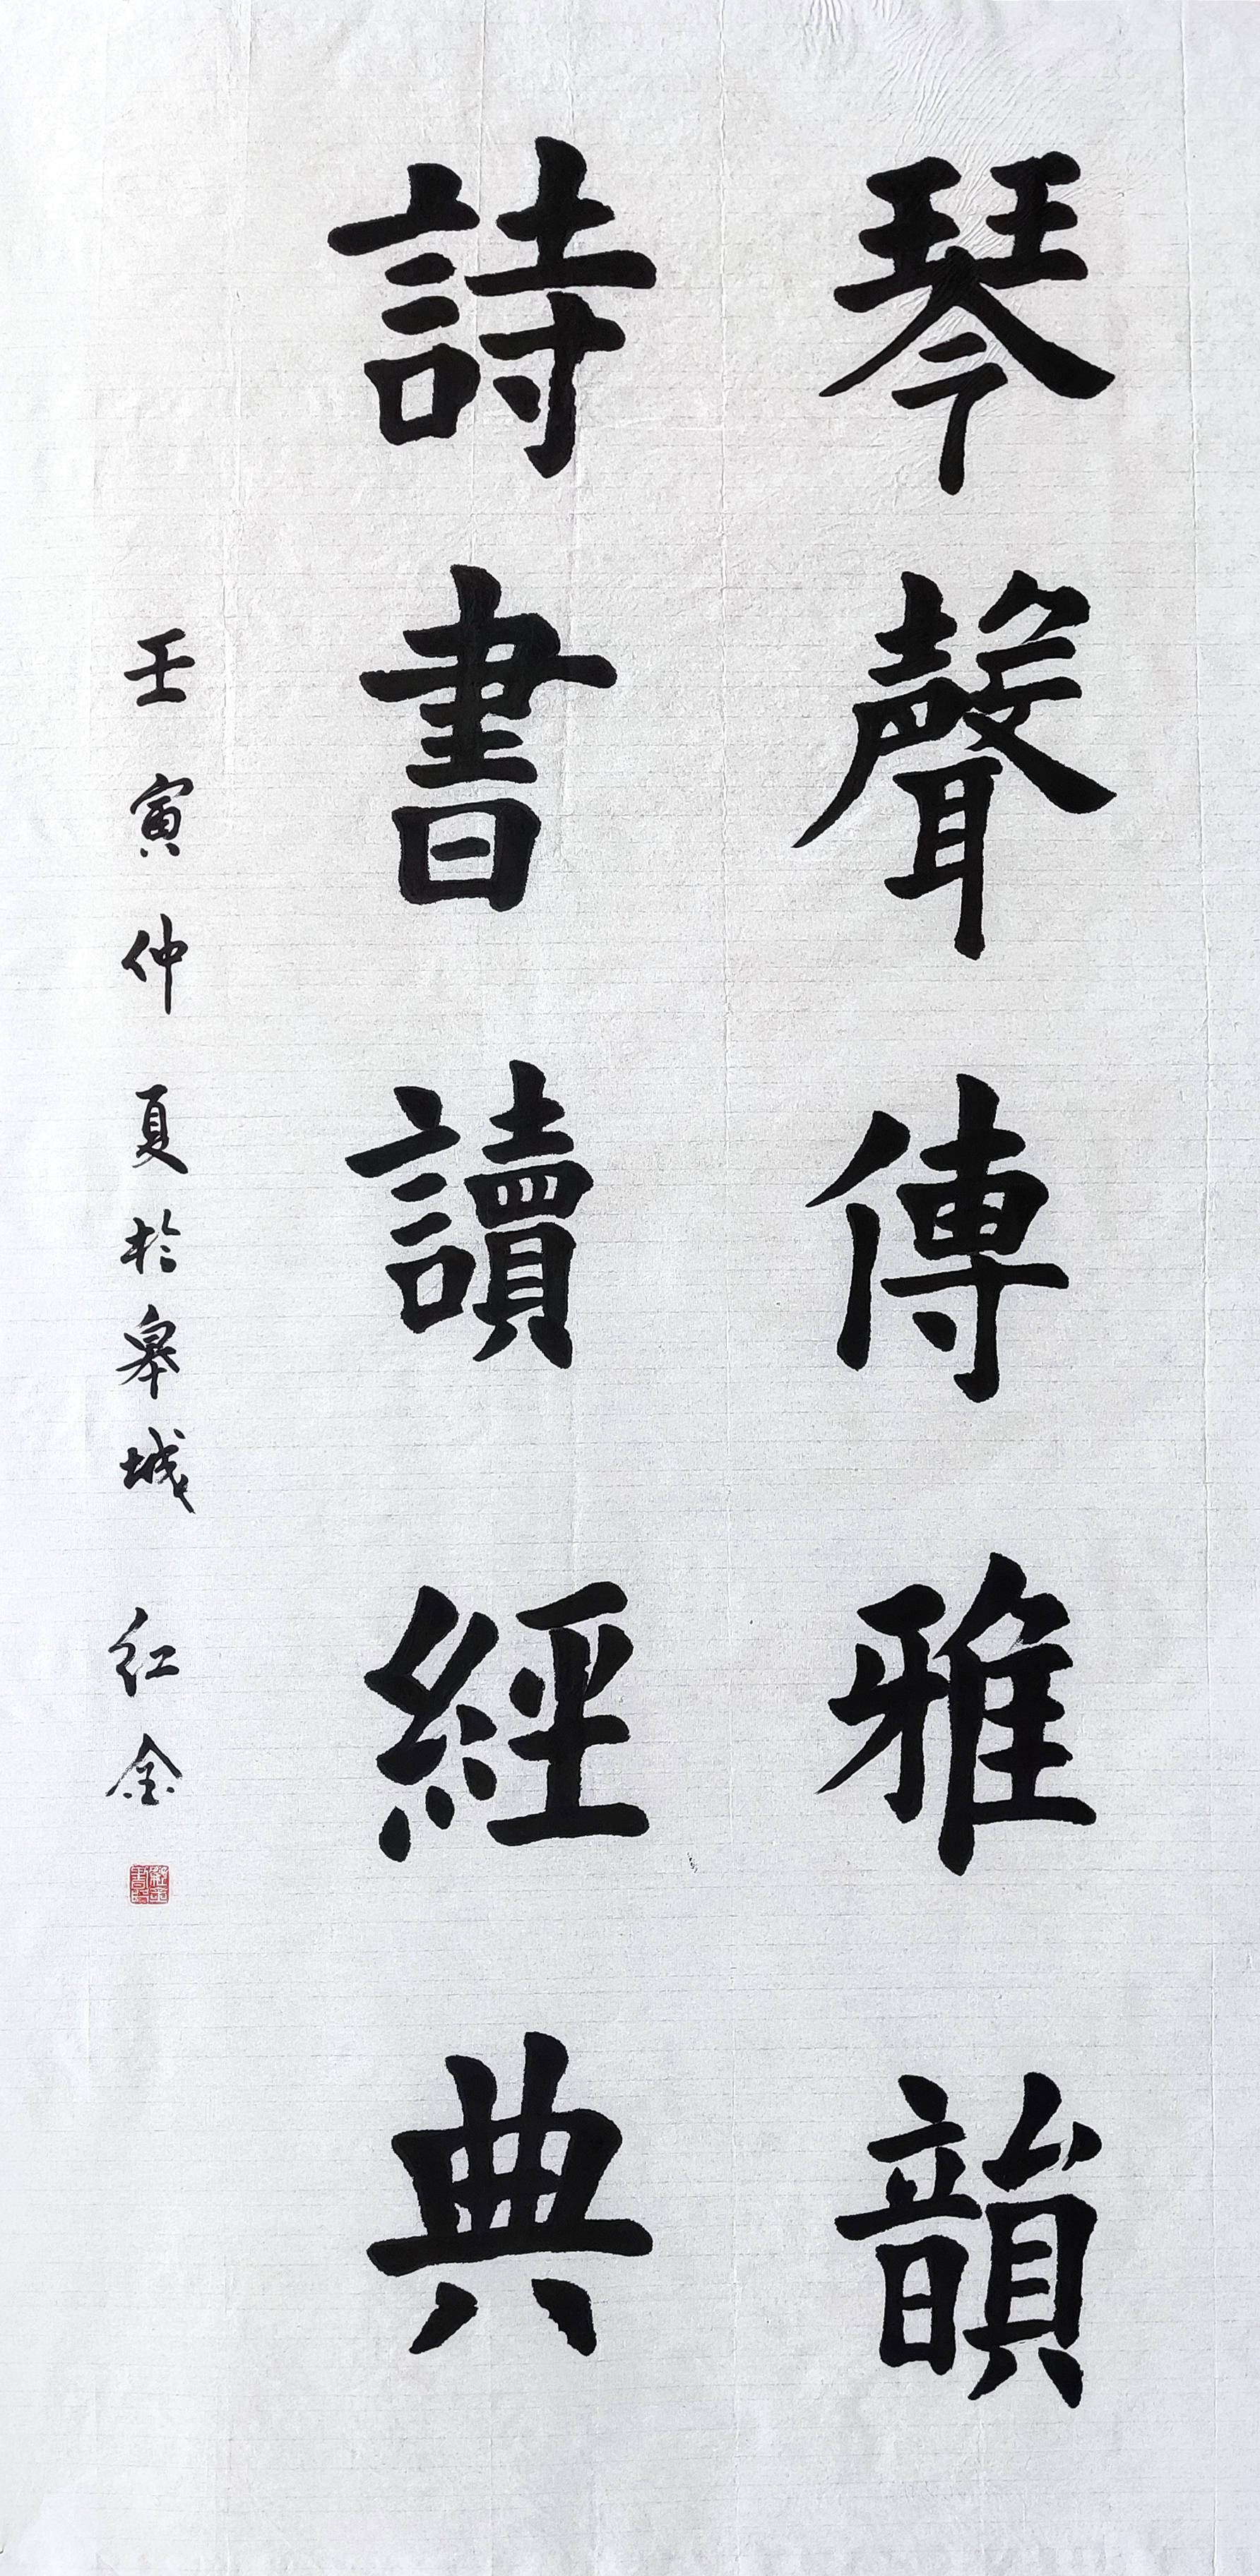 琴聲傳雅韻
詩書讀經典
壬寅仲夏於皋城 红金